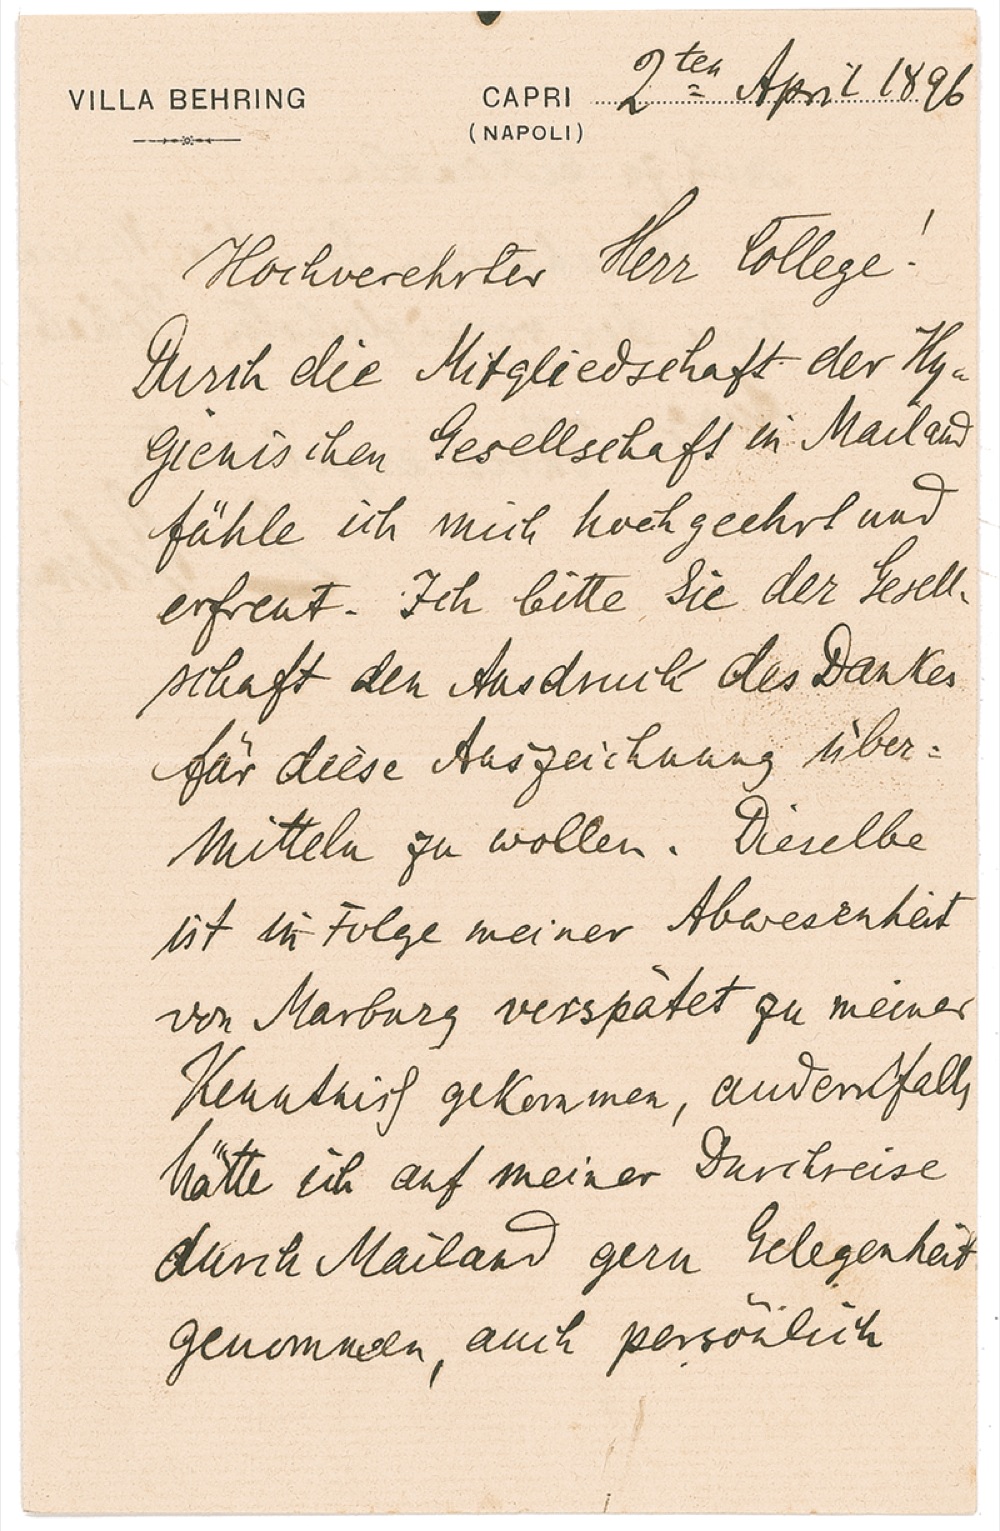 VILLA BEHRING
CAPRI 2ten April 1896
(NAPOLI)
Hochverehrter Herr College!
Durch die Mitgliedschaft der Hy=
gienischen Gesellschaft in Mailand
fühle ich mich hochgeehrt und
erfreut. Ich bitte Sie der Gesell-
schaft den Ausdruck des Dankes
für diese Auszeichnung über=
mitteln zu wollen. Dieselbe
ist in Folge meiner Abwesenheit
von Marburg verspätet zu meiner
Kenntniß gekommen, andernfalls
hätte ich auf meiner Durchreise
durch Mailand gern Gelegenheit
genommen, auch persönlich